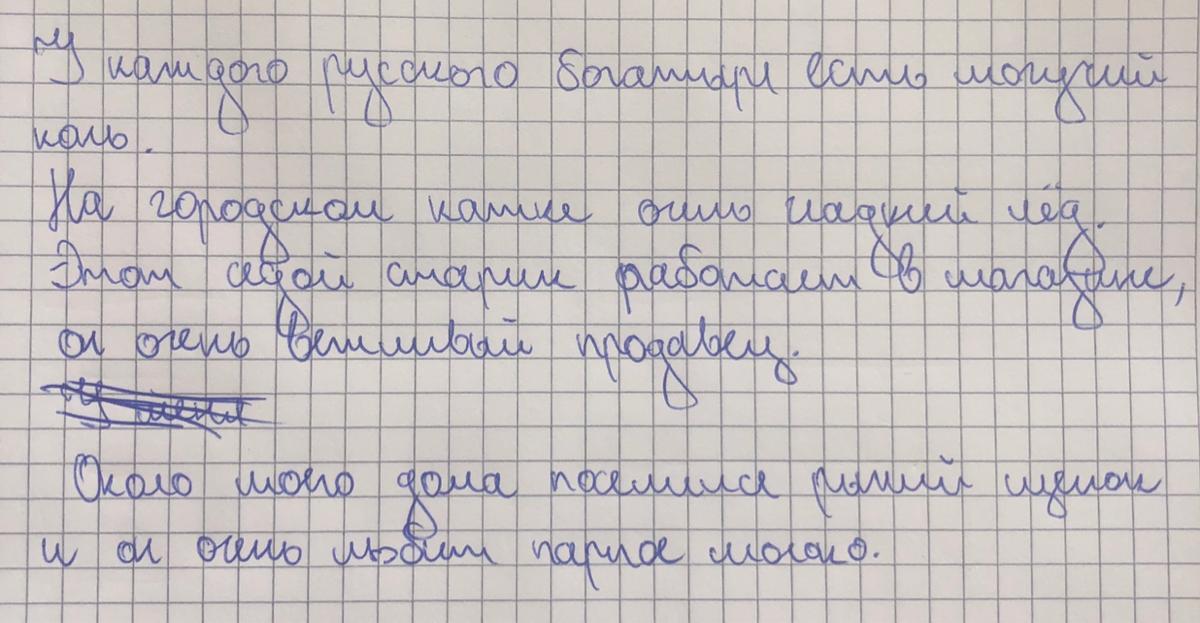 У каждого русского богатыря есть могучий
конь.
На городском катке очень гладкий лёд.
Этот седой старик работает в магазине,
он очень вежливый продавец.
У меня
Около моего дома поселился рыжий щенок
и он очень любит парное молоко.